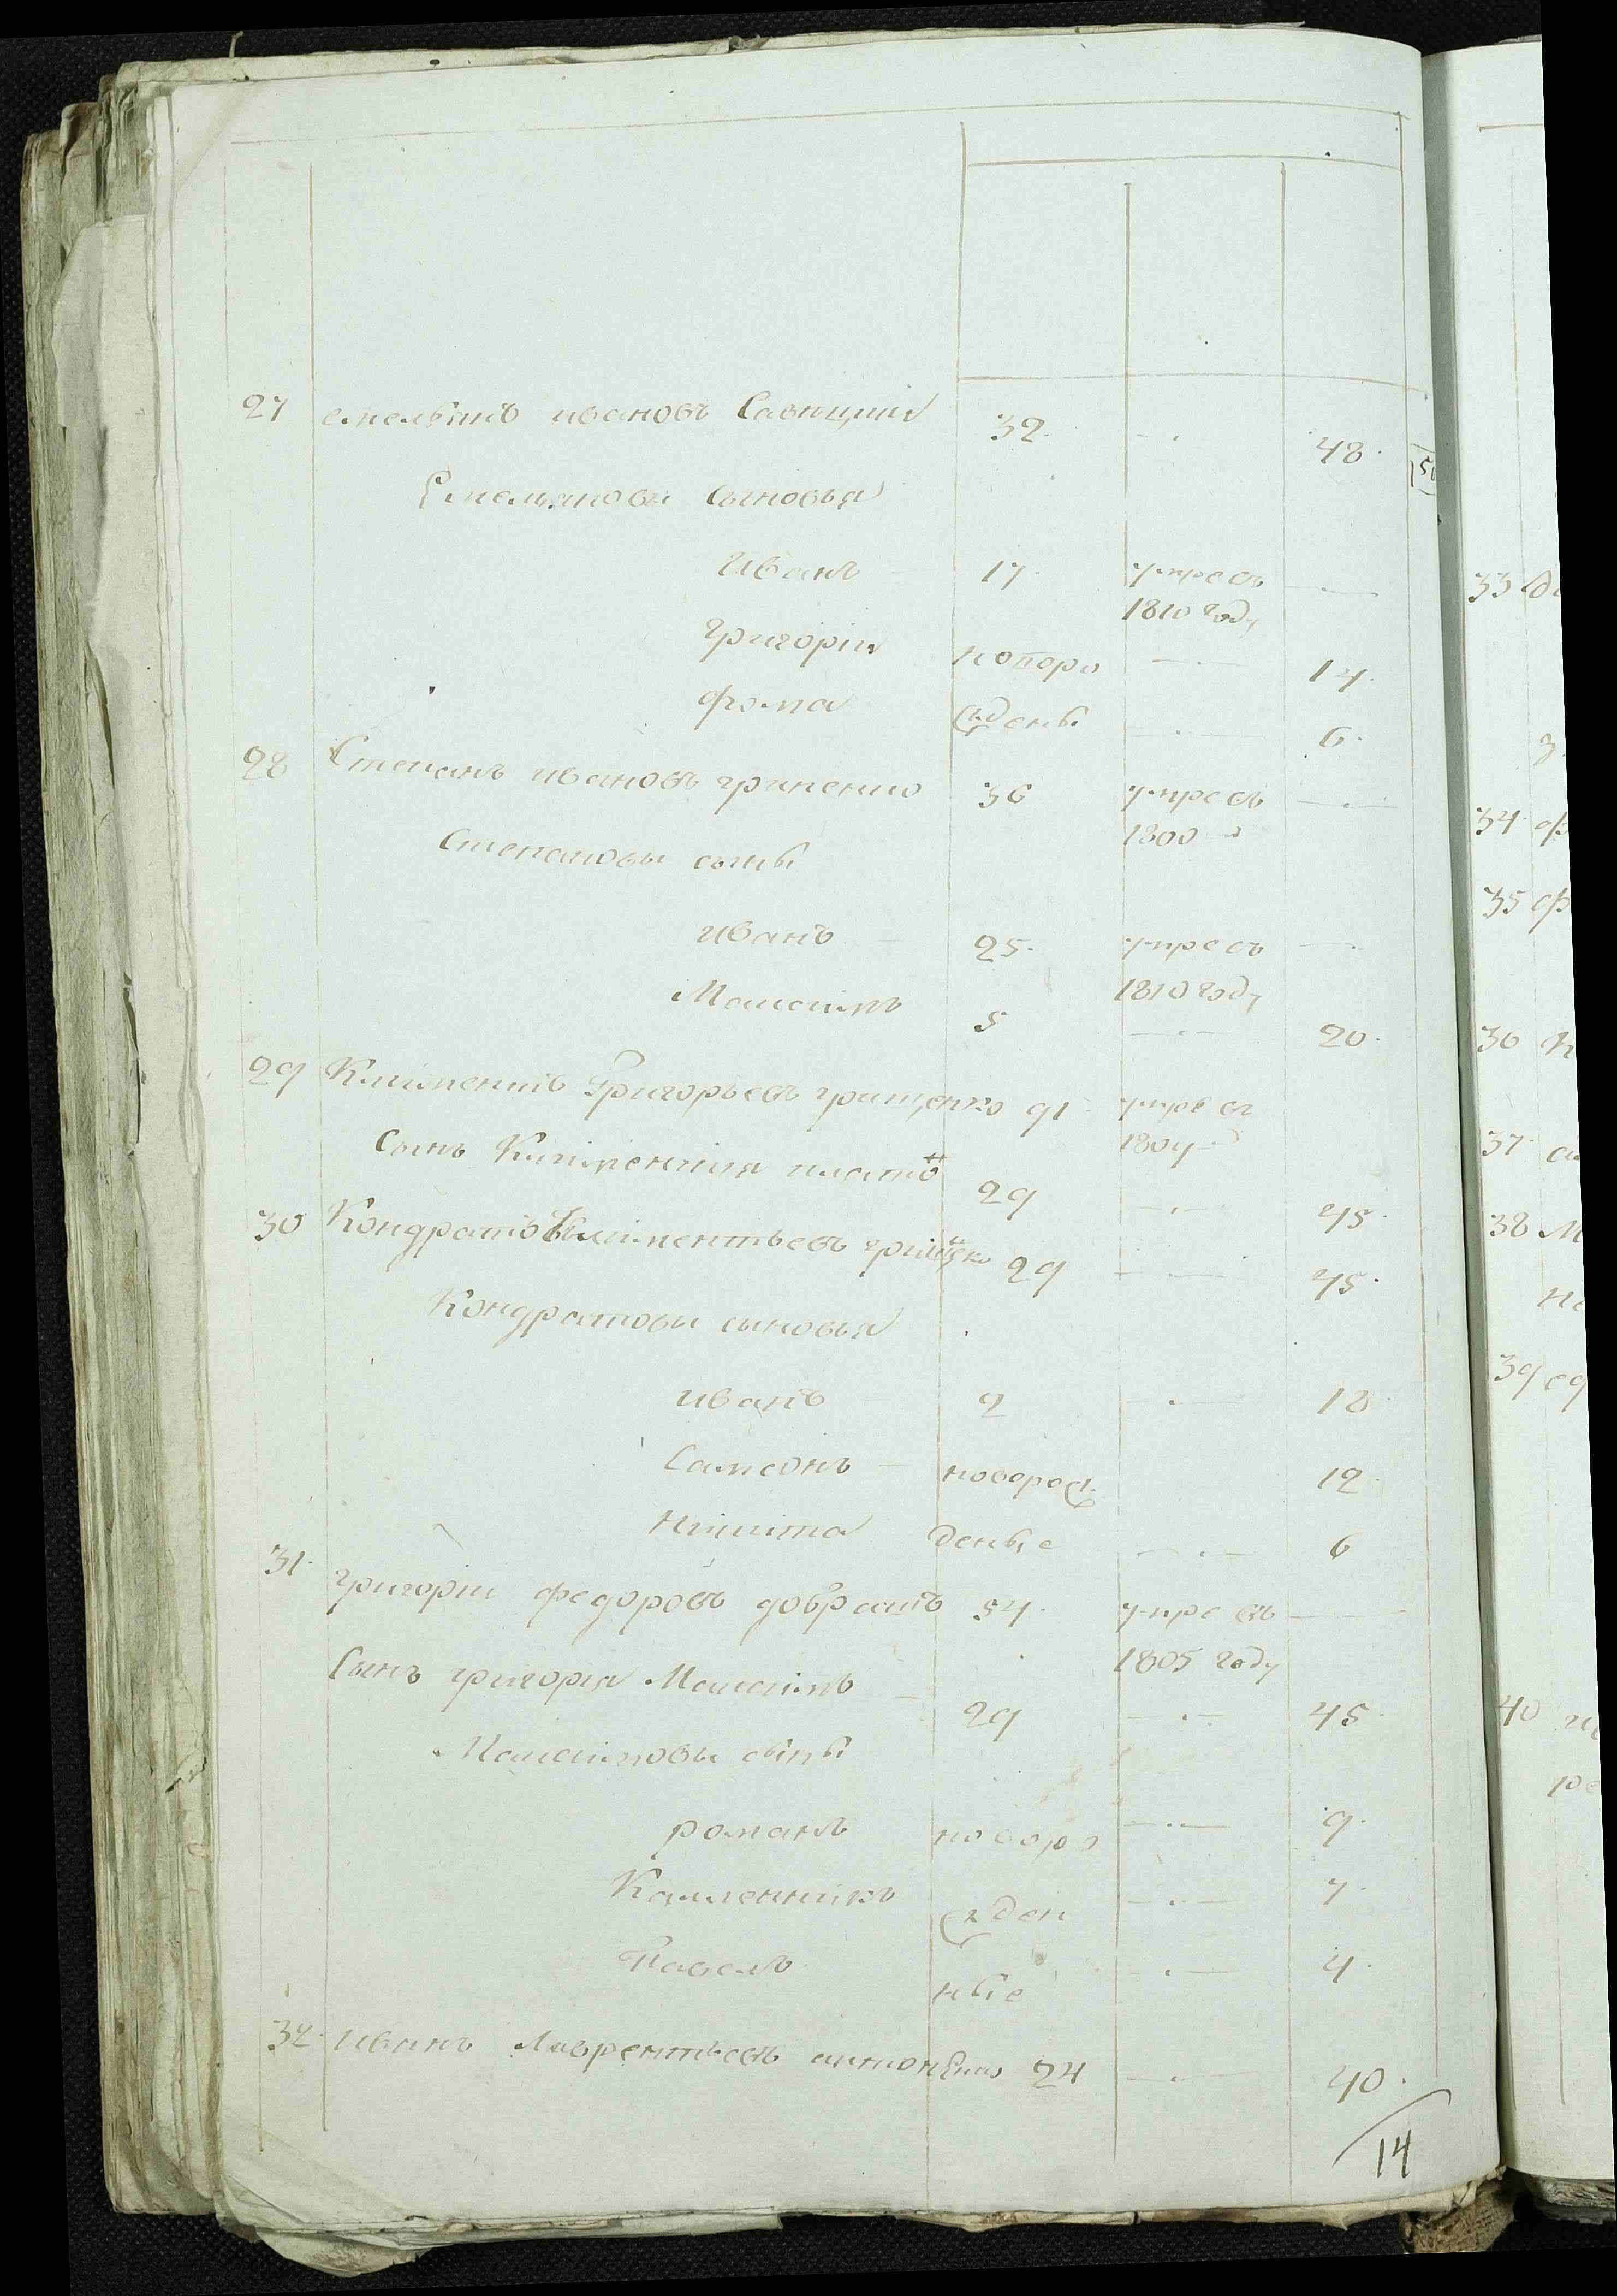 27 емельянъ ивановъ Савицкій 32. 48.
Емельяновы сыновья
Иванъ 17. умре въ 1810 году
григоріи новоро 14.
фома жденые 6.
28 Степанъ ивановъ гриненко 36 умре въ 1800
Степановы сыны
иванъ 25. умре въ 1810 году
Максимъ 5 20.
29 Климентъ Григорьевъ грищенко 91 умре въ 1807
Сынъ Климентия платонъ 29 45.
30 Кондратъ Климентьевъ грищенко 29 45.
Кондратовы сыновья
иванъ 2 18.
Самсонъ новорож 12.
никита деные 6
31. григоріи федоровъ добранъ 54. умре въ 1805 году
Сынъ григорія Максимъ 29 45.
Максимовы сыны
романъ новоро 9.
Каленникъ жден 7.
Павелъ ные 4.
32. иванъ Лаврентьевъ антоненко 24 40.
14
33
34 ф
35 ф
36 К
37
38 М
39
40